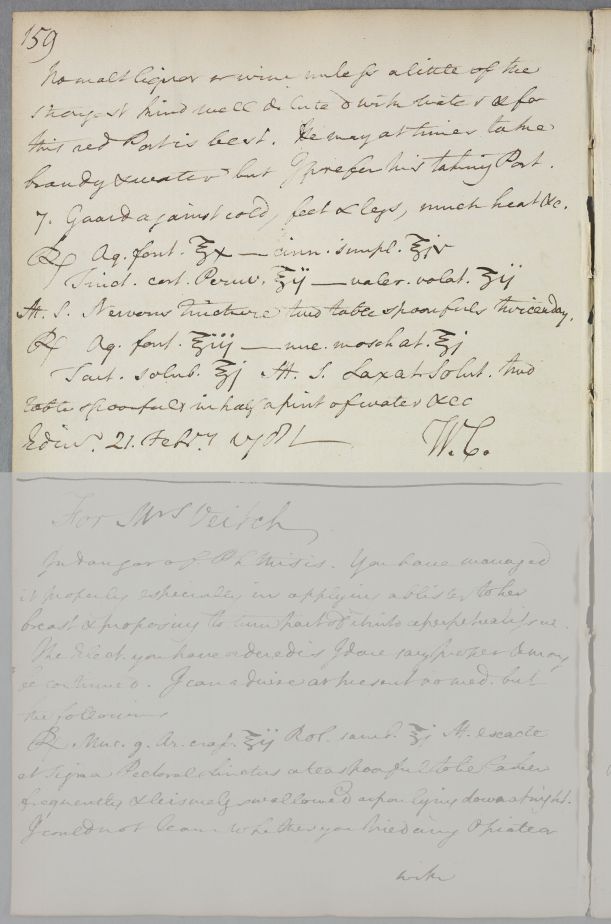 159
No malt liquor or wine unless a little of the
strongest kind well diluted with water & for
this red Port is best. He may at times take
brandy & water but I prefer his taking Port.
7. Guard against cold, feet & legs, much heat &c.
℞ Aq. font. ℥x — cinn. simpl. ℥iv
Tinct. cort. Peruv. ℥ij — valer. volat. ℥ij
M. S. Nervous tincture two table spoonfuls twice a day.
℞ Aq. font. ℥iij — nuc. moschat. ℥j
Tart. solub. ℥j M. S. Laxat. Solut. two
table spoonfuls in half a pint of water &c
Edinr. 21. Febry 1781 W.C.
For Mrs Veitch
In danger of Phthisis. You have managed
it properly especially in applying a blister to her
breast & proposing to turn part of it into a perpetual issue.
The Elect. you have ordered is I dare say proper & may
be continued. I can advise at present no med. but
the following
℞ Muc. g. Ar. crass. ℥ij Rob. samb. ℥j M. exacte
et signa Pectoral Linctus a teaspoonful to be taken
frequently & leisurely swallowed upon lying down at night.
I could not learn whether you tried any Opiate
with